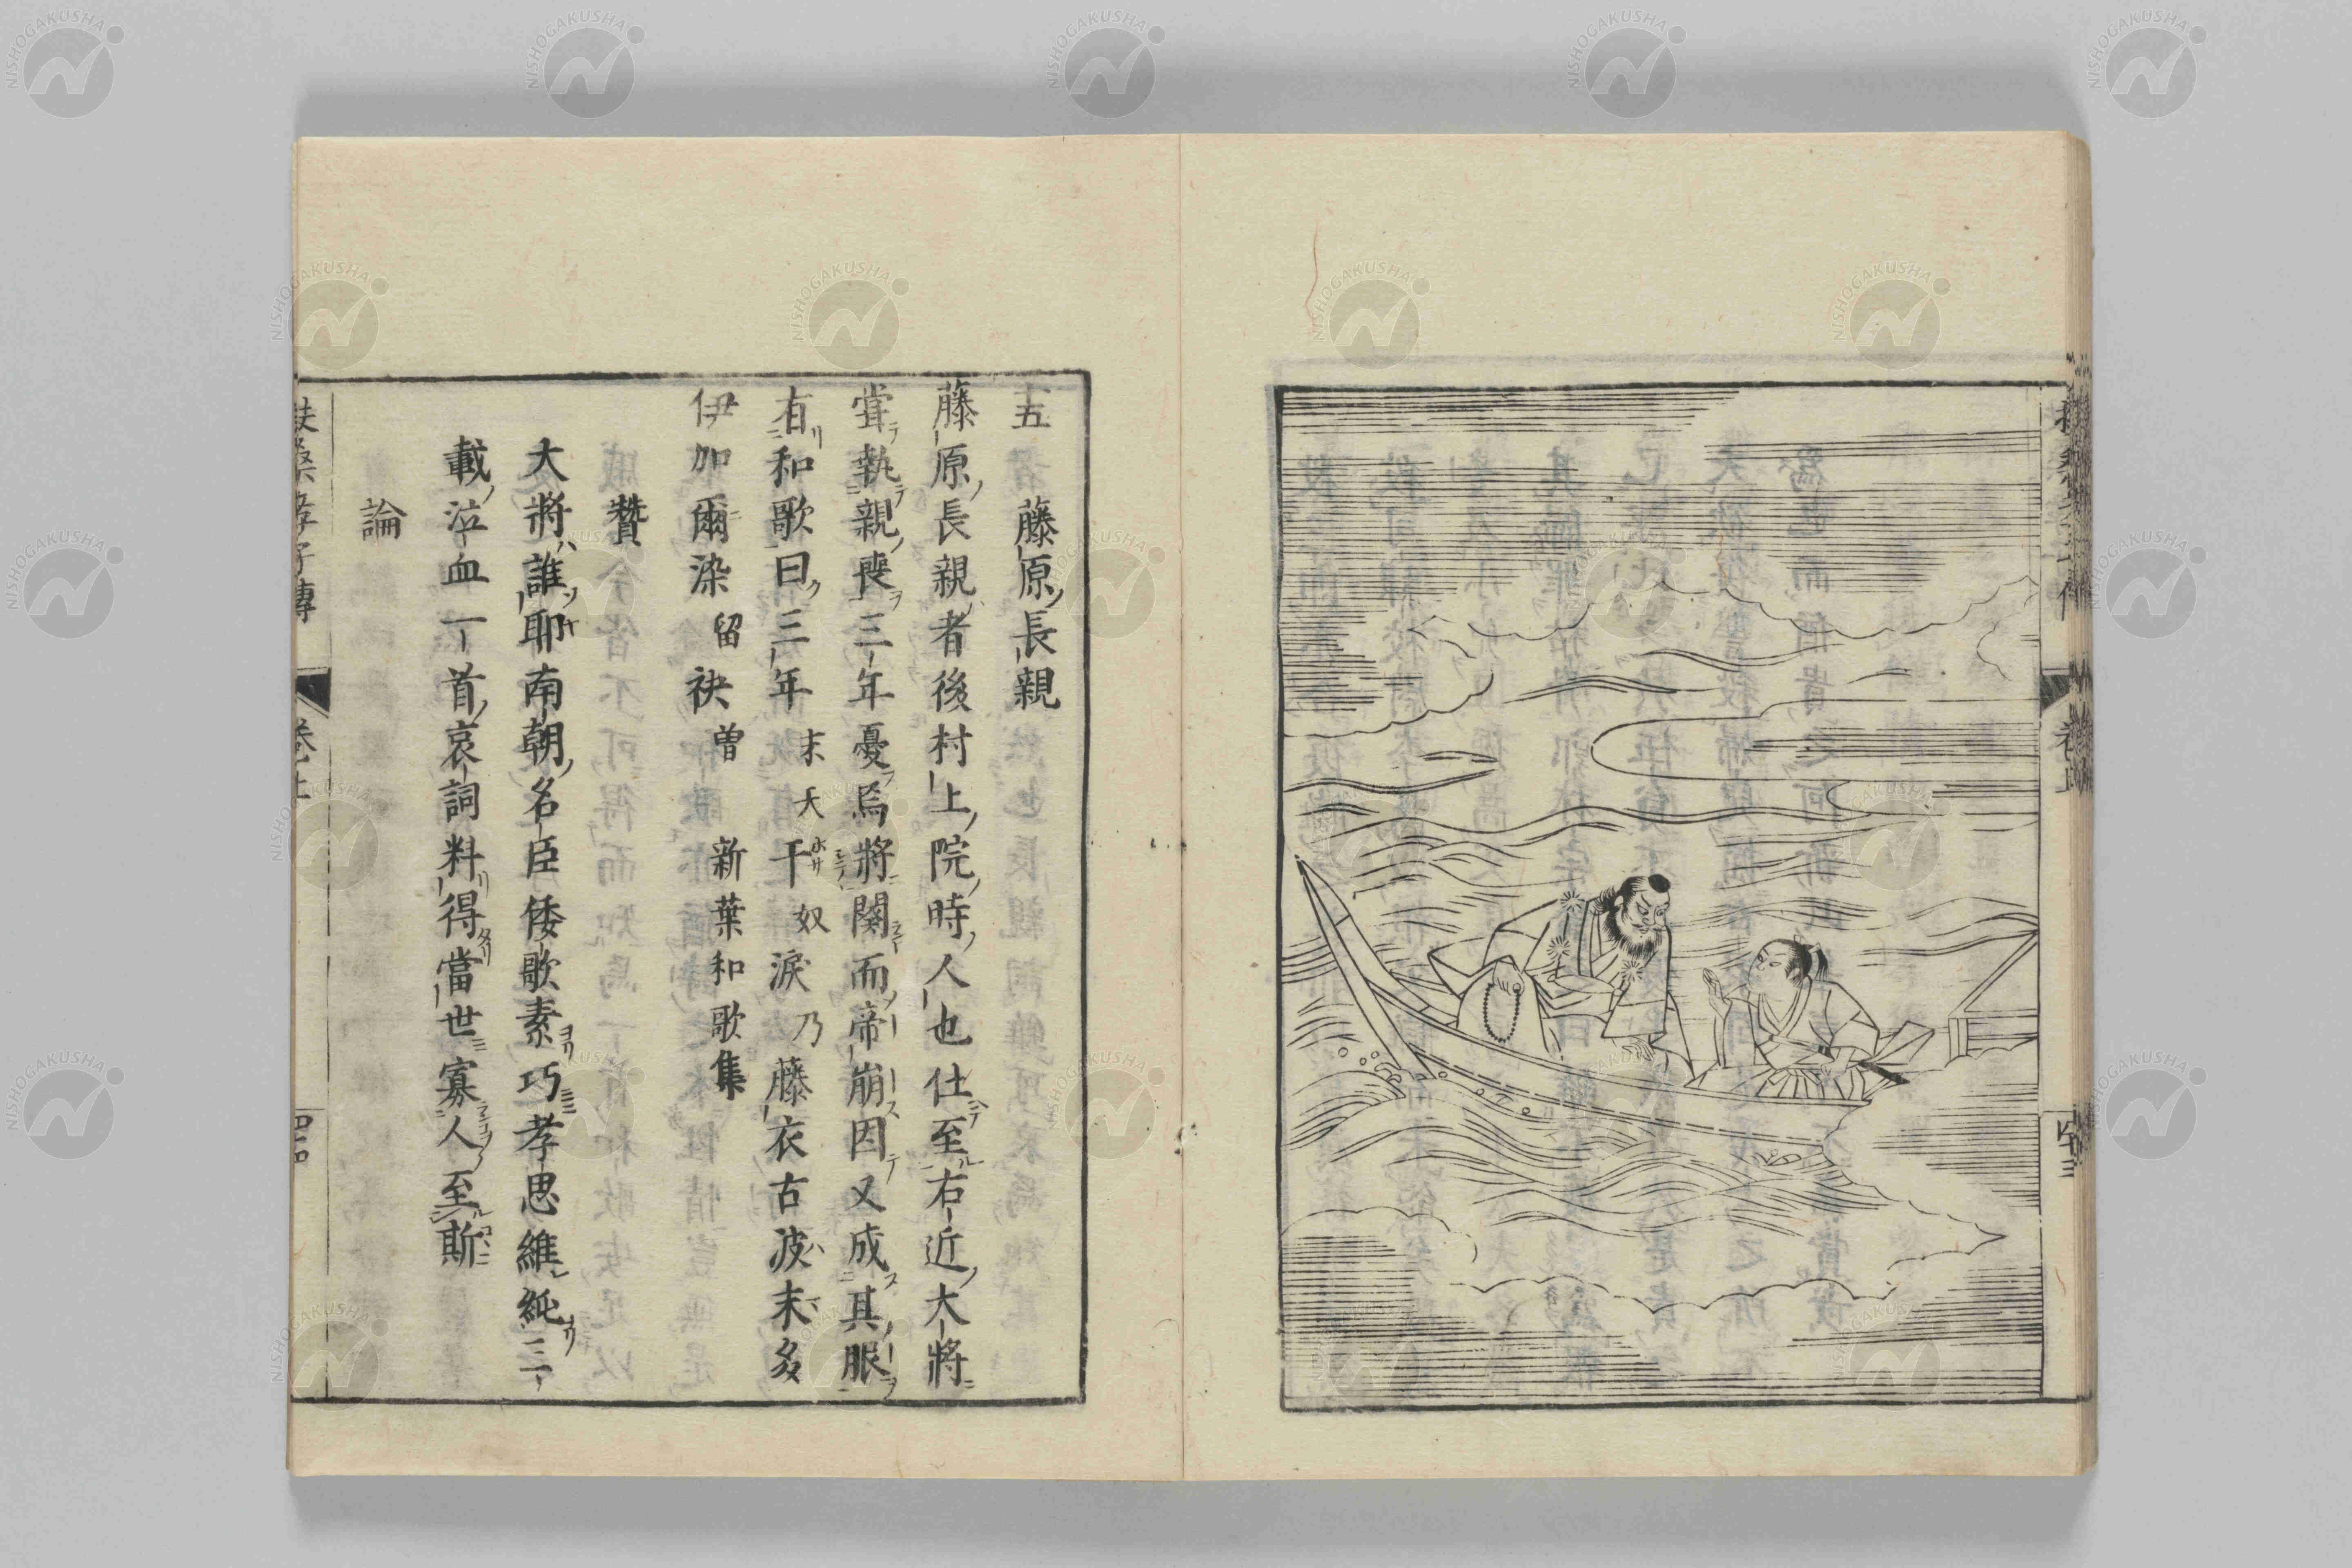 十五 藤原長親
藤原長親者後村上院時人也仕至右近大將
甞執親喪三年憂焉將闋而帝崩因又成其服
有和歌曰三年末天干奴涙乃藤衣古波末多
伊加爾染留袂曽 新葉和歌集
贊
大將誰耶南朝名臣倭歌素巧孝思維純三
載泣血一首哀詞料得當世寡人至斯
論
扶桑孝子傳 卷上
NISHOGAKUSHA